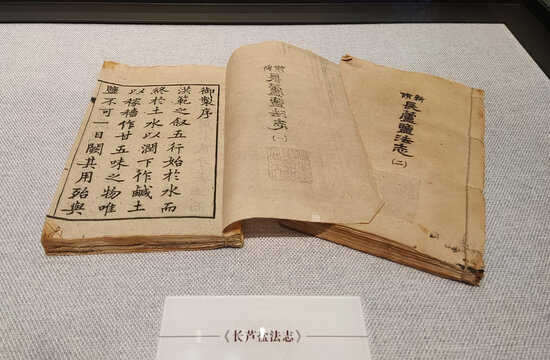 御製序
洪範之敘五行始於水而
終於土水以潤下作鹹土
以稼穡作甘五味之物唯
鹽不可一日闕其用殆與
新脩長蘆鹽法志(一)
新脩長蘆鹽法志(二)
《长芦盐法志》